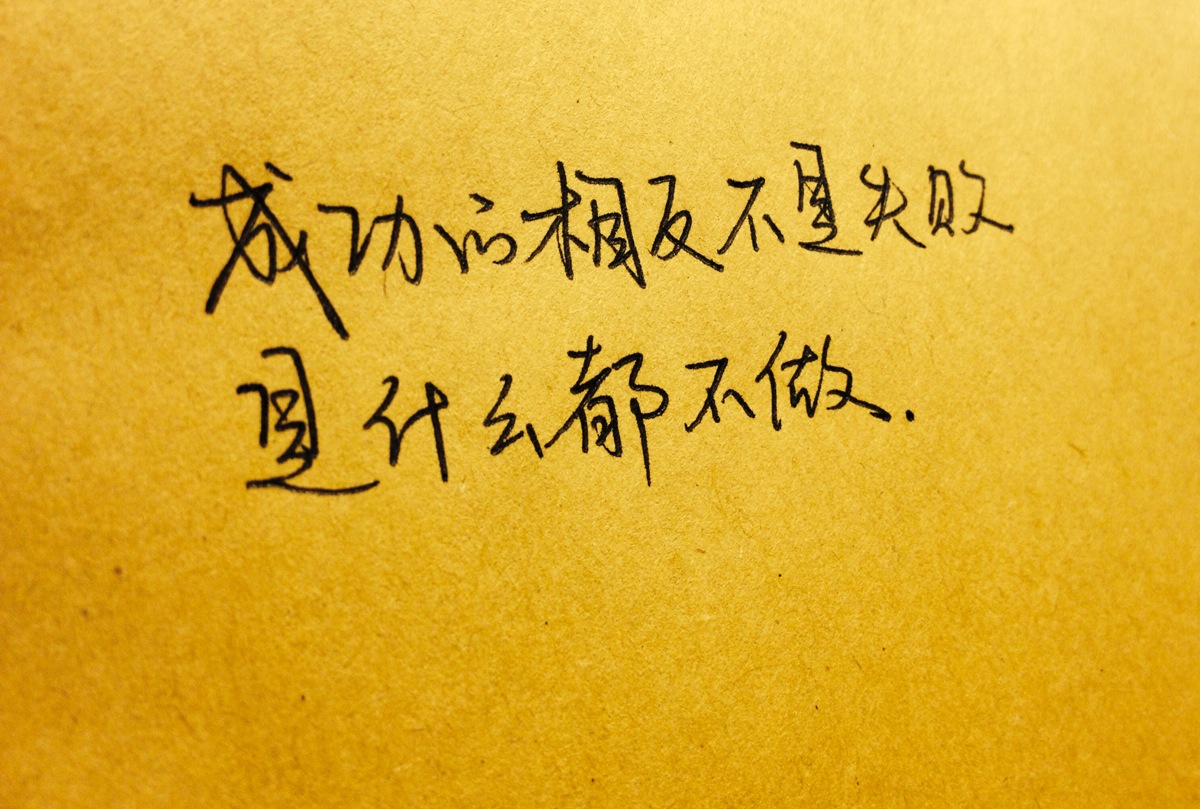 成功的相反不是失败
是什么都不做.